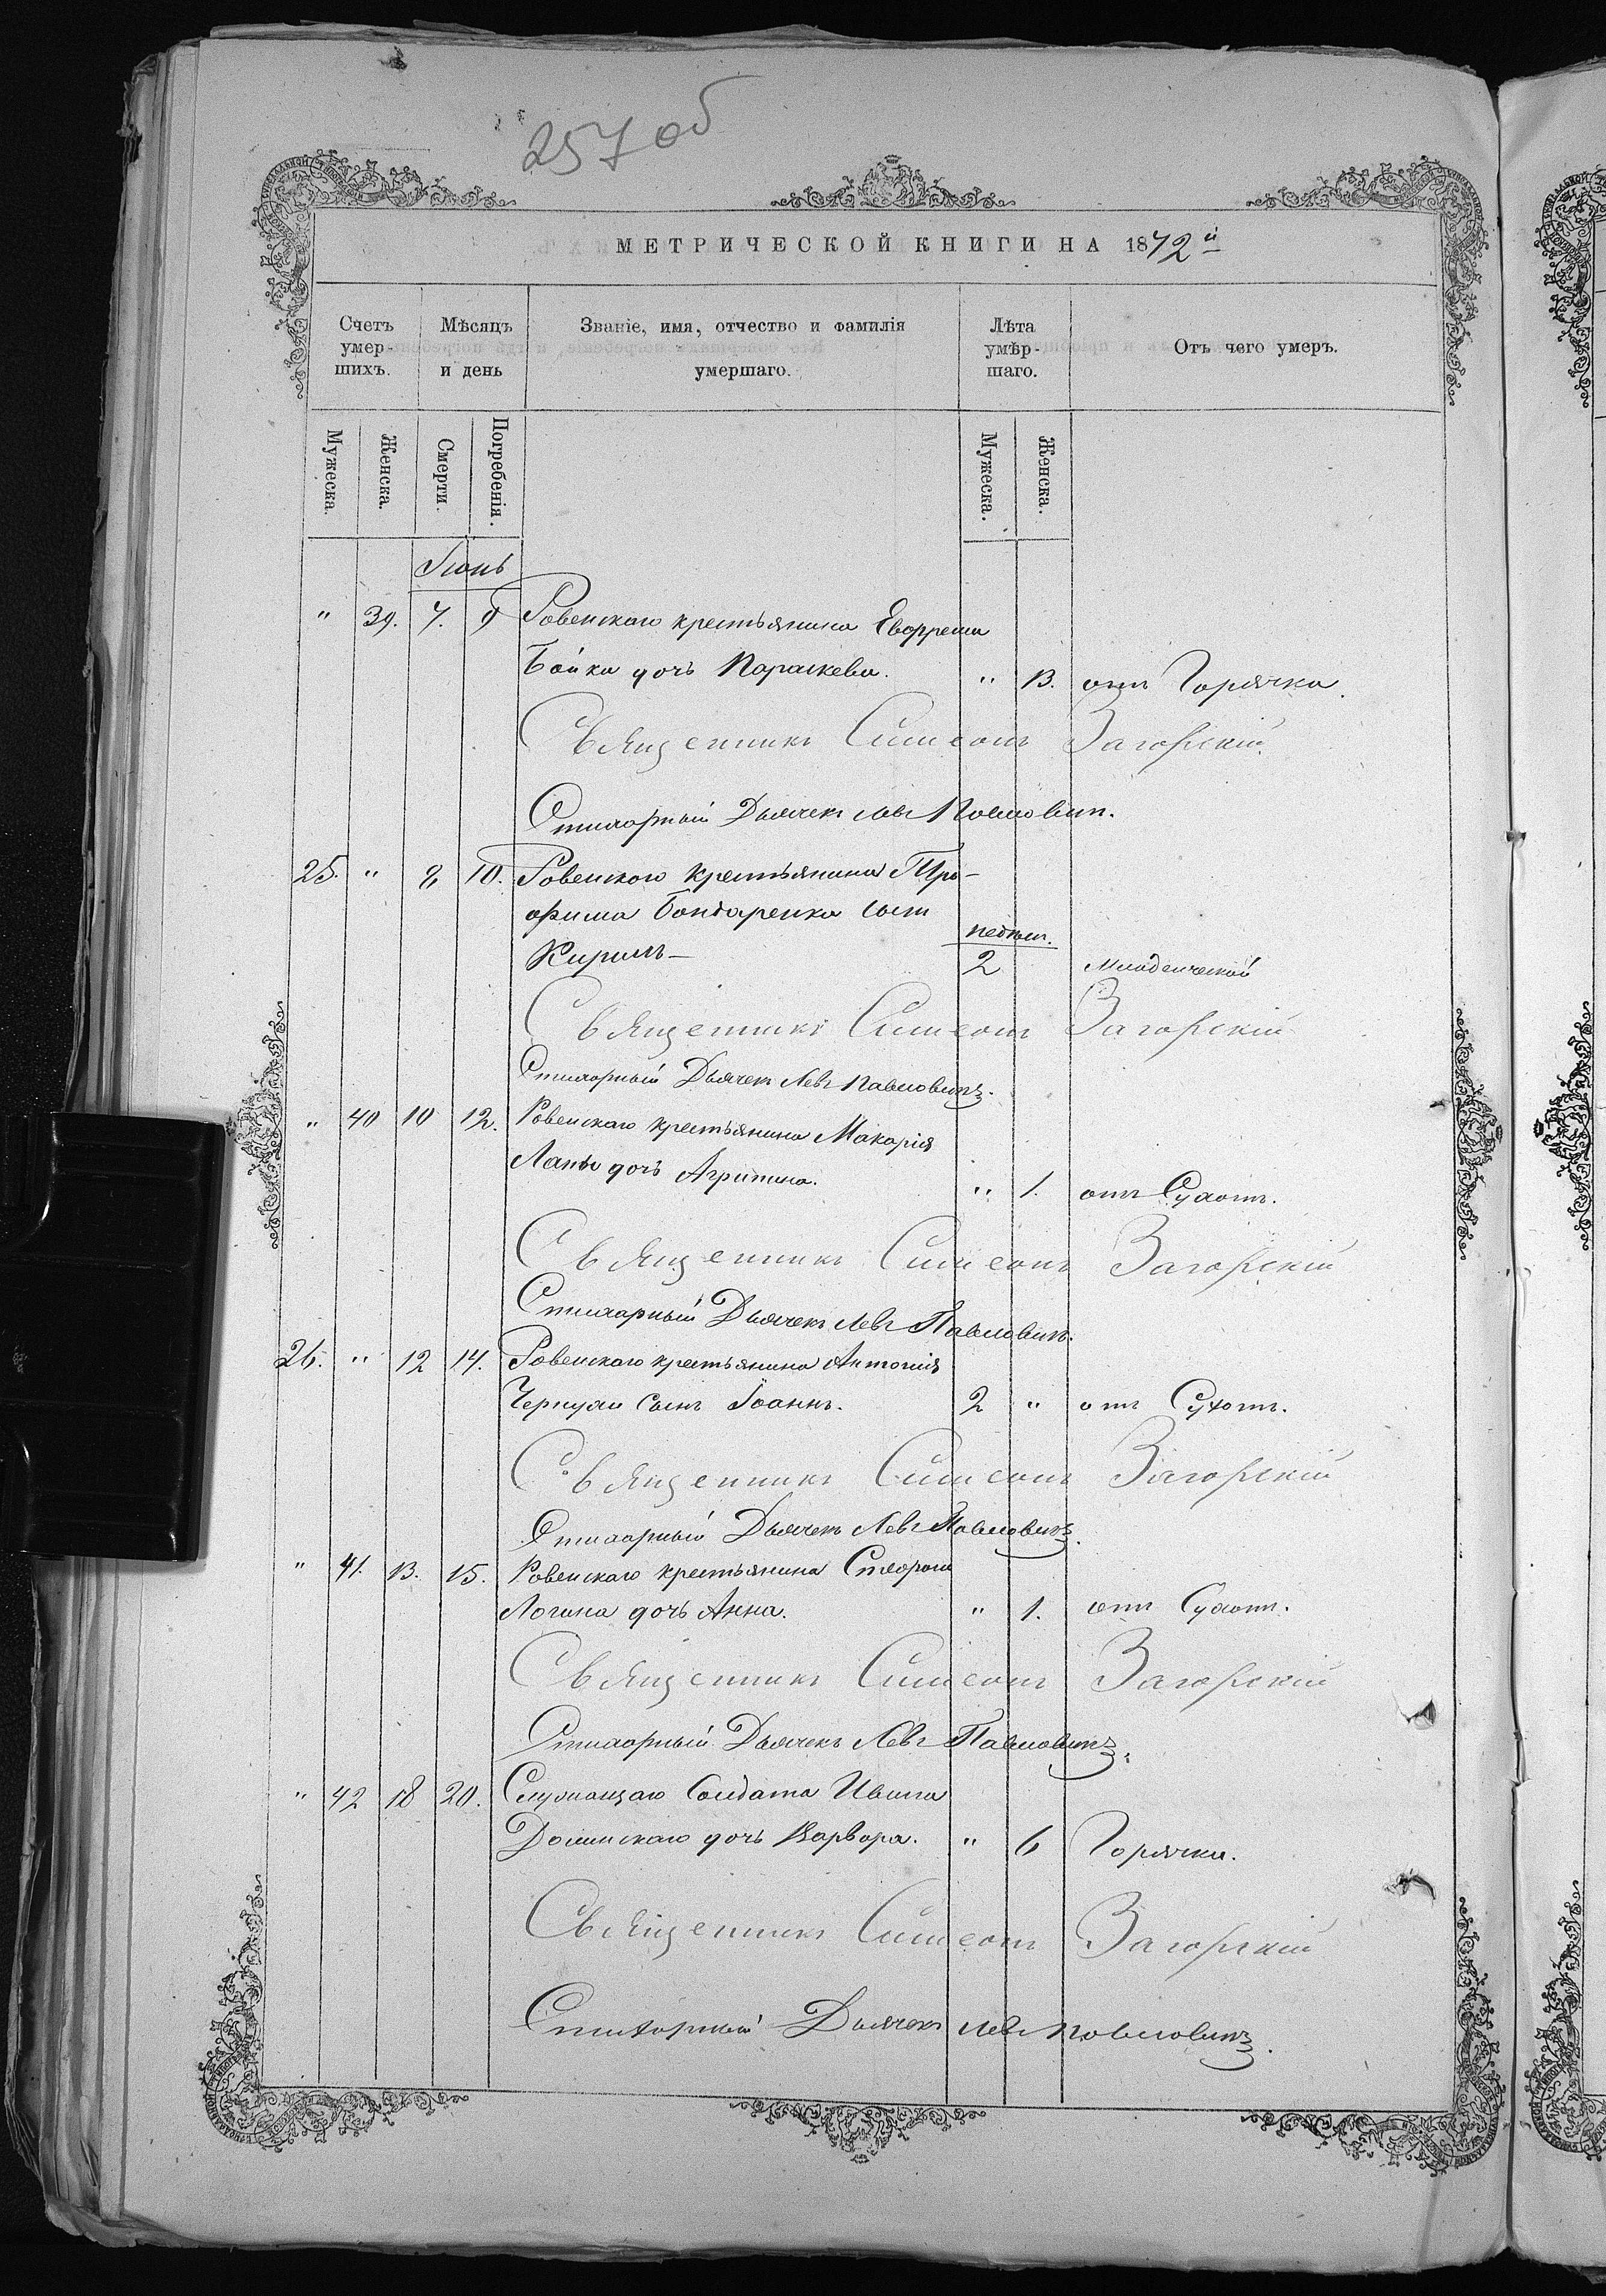 257 об
МЕТРИЧЕСКОЙ КНИГИ НА 1872 й
Счетъ умер- шихъ. Мѣсяцъ и день Званіе, имя, отчество и фамилія умершаго. Лѣта умѣр- шаго. Отъ чего умеръ.
Мужеска. Женска. Смерти. Погребенія. Мужеска. Женска.
Іюнь
" 39. 7. 9 Ровенскаго крестьянина Евфрема
Бойка дочь Параскева. " 13. отъ Горячки.
Священникъ Симеонъ Загорскій
Стихарный Дьячекъ Левъ Павловичъ.
25. " 8 10. Ровенского крестьянина Тро-
фима Бондаренка сынъ недѣл.
Кирилъ— 2 Младенческой
Священникъ Симеонъ Загорскій
Стихарный Дьячекъ Левъ Павловичъ.
" 40 10 12. Ровенскаго крестьянина Макарія
дочь Агрипина. " 1. отъ Сухот.
Священникъ Симеонъ Загорскій
Стихарный Дьячекъ Левъ Павловичъ.
26. " 12 14. Ровенскаго крестьянина Антонія
сынъ Іоаннъ. 2 " отъ Сухот.
Священникъ Симеонъ Загорскій
Стихарный Дьячекъ Левъ Павловичъ.
" 41. 13. 15. Ровенскаго крестьянина
Логина дочь Анна. " 1. отъ Сухот.
Священникъ Симеонъ Загорскій
Стихарный Дьячекъ Левъ Павловичъ.
" 42 18 20. Служащаго Солдата Ивана
Долинскаго дочь Варвара. " 6 Горячки.
Священникъ Симеонъ Загорскій
Стихарный Дьячекъ Левъ Павловичъ.